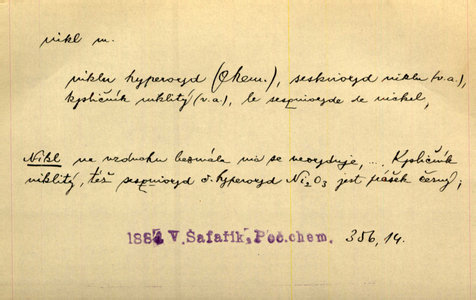 nikl m.
niklu hyperoxyd (Chem.), seskvioxyd niklu (v.a.),
kysličník niklitý (v.a.), le sesquioxyde de nickel,
Nikl na vzduchu bezmála nic se neoxyduje, ... Kysličník
niklitý, též sesquioxyd č. hyperoxyd Ni2O3 jest prášek černý;
188 V. Šafařík, Poč. chem. 356, 14.